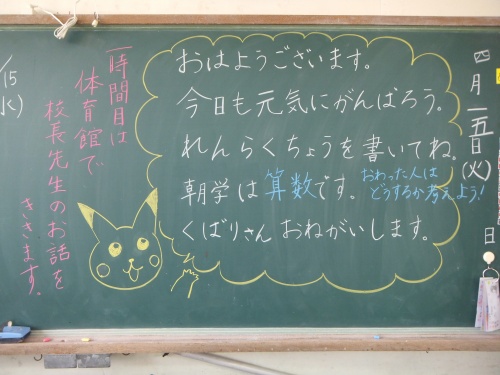 四月一五日(火)
おはようございます。
今日も元気にがんばろう。
れんらくちょうを書いてね。
朝学は算数です。
おわった人は
どうするか考えよう!
くばりさん おねがいします。
一時間目は
体育館で
校長先生のお話を
ききます。
日
/15
水)